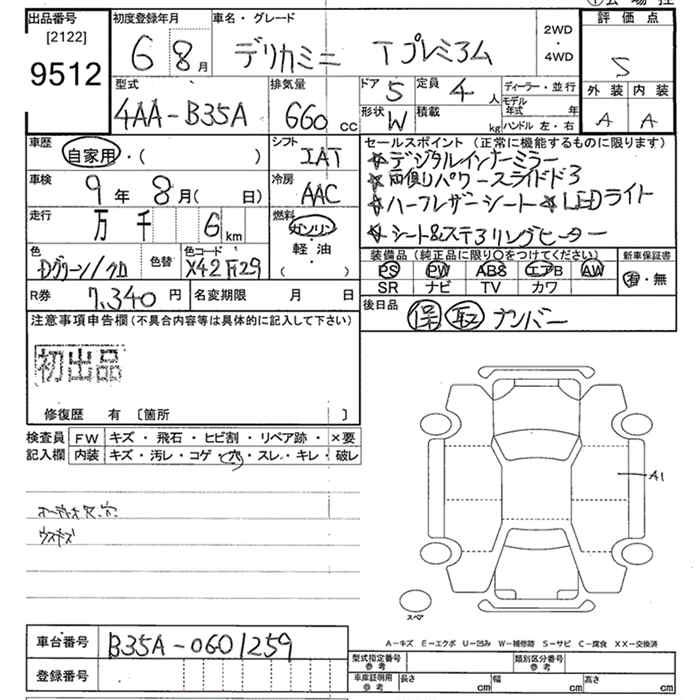 出品番号
[2122]
9512
初度登録年月
6 8月
車名・グレード
デリカミニ Tプレミアム
2WD
・
4WD
評価点
S
外装 内装
A A
型式
4AA-B35A
排気量
660 cc
ドア 5
定員 4 人
形状 W
積載 kg
ディーラー・並行
モデル年式 年
ハンドル 左・右
車歴
自家用・( )
シフト
IAT
車検
9年 8月( 日)
冷房
AAC
走行
万 千 6 km
燃料
ガソリン
軽油
( )
色
Dグリーン/クロ
色替
色コード
X42 F29
セールスポイント (正常に機能するものに限ります)
☆デジタルインナーミラー
☆両側パワースライドドア
☆ハーフレザーシート ☆LEDライト
☆シート&ステアリングヒーター
装備品 (純正品に限り○をつけてください)
PS PW ABS エアB AW
SR ナビ TV カワ
新車保証書
有・無
R券 7,340円
名変期限 月 日
後日品
保 取 ナンバー
注意事項申告欄 (不具合内容等は具体的に記入して下さい)
初出品
修復歴 有 〔箇所 〕
検査員
記入欄
FW キズ・飛石・ヒビ割・リペア跡・×要
内装 キズ・汚レ・コゲ・穴・スレ・キレ・破レ
ウスキズ
A1
スペア
A-キズ E-エクボ U-凹み W-補修跡 S-サビ C-腐食 XX-交換済
車台番号 B35A-0601259
登録番号
型式指定番号
参考
類別区分番号
参考
車庫証明用
参考
長さ cm 幅 cm 高さ cm